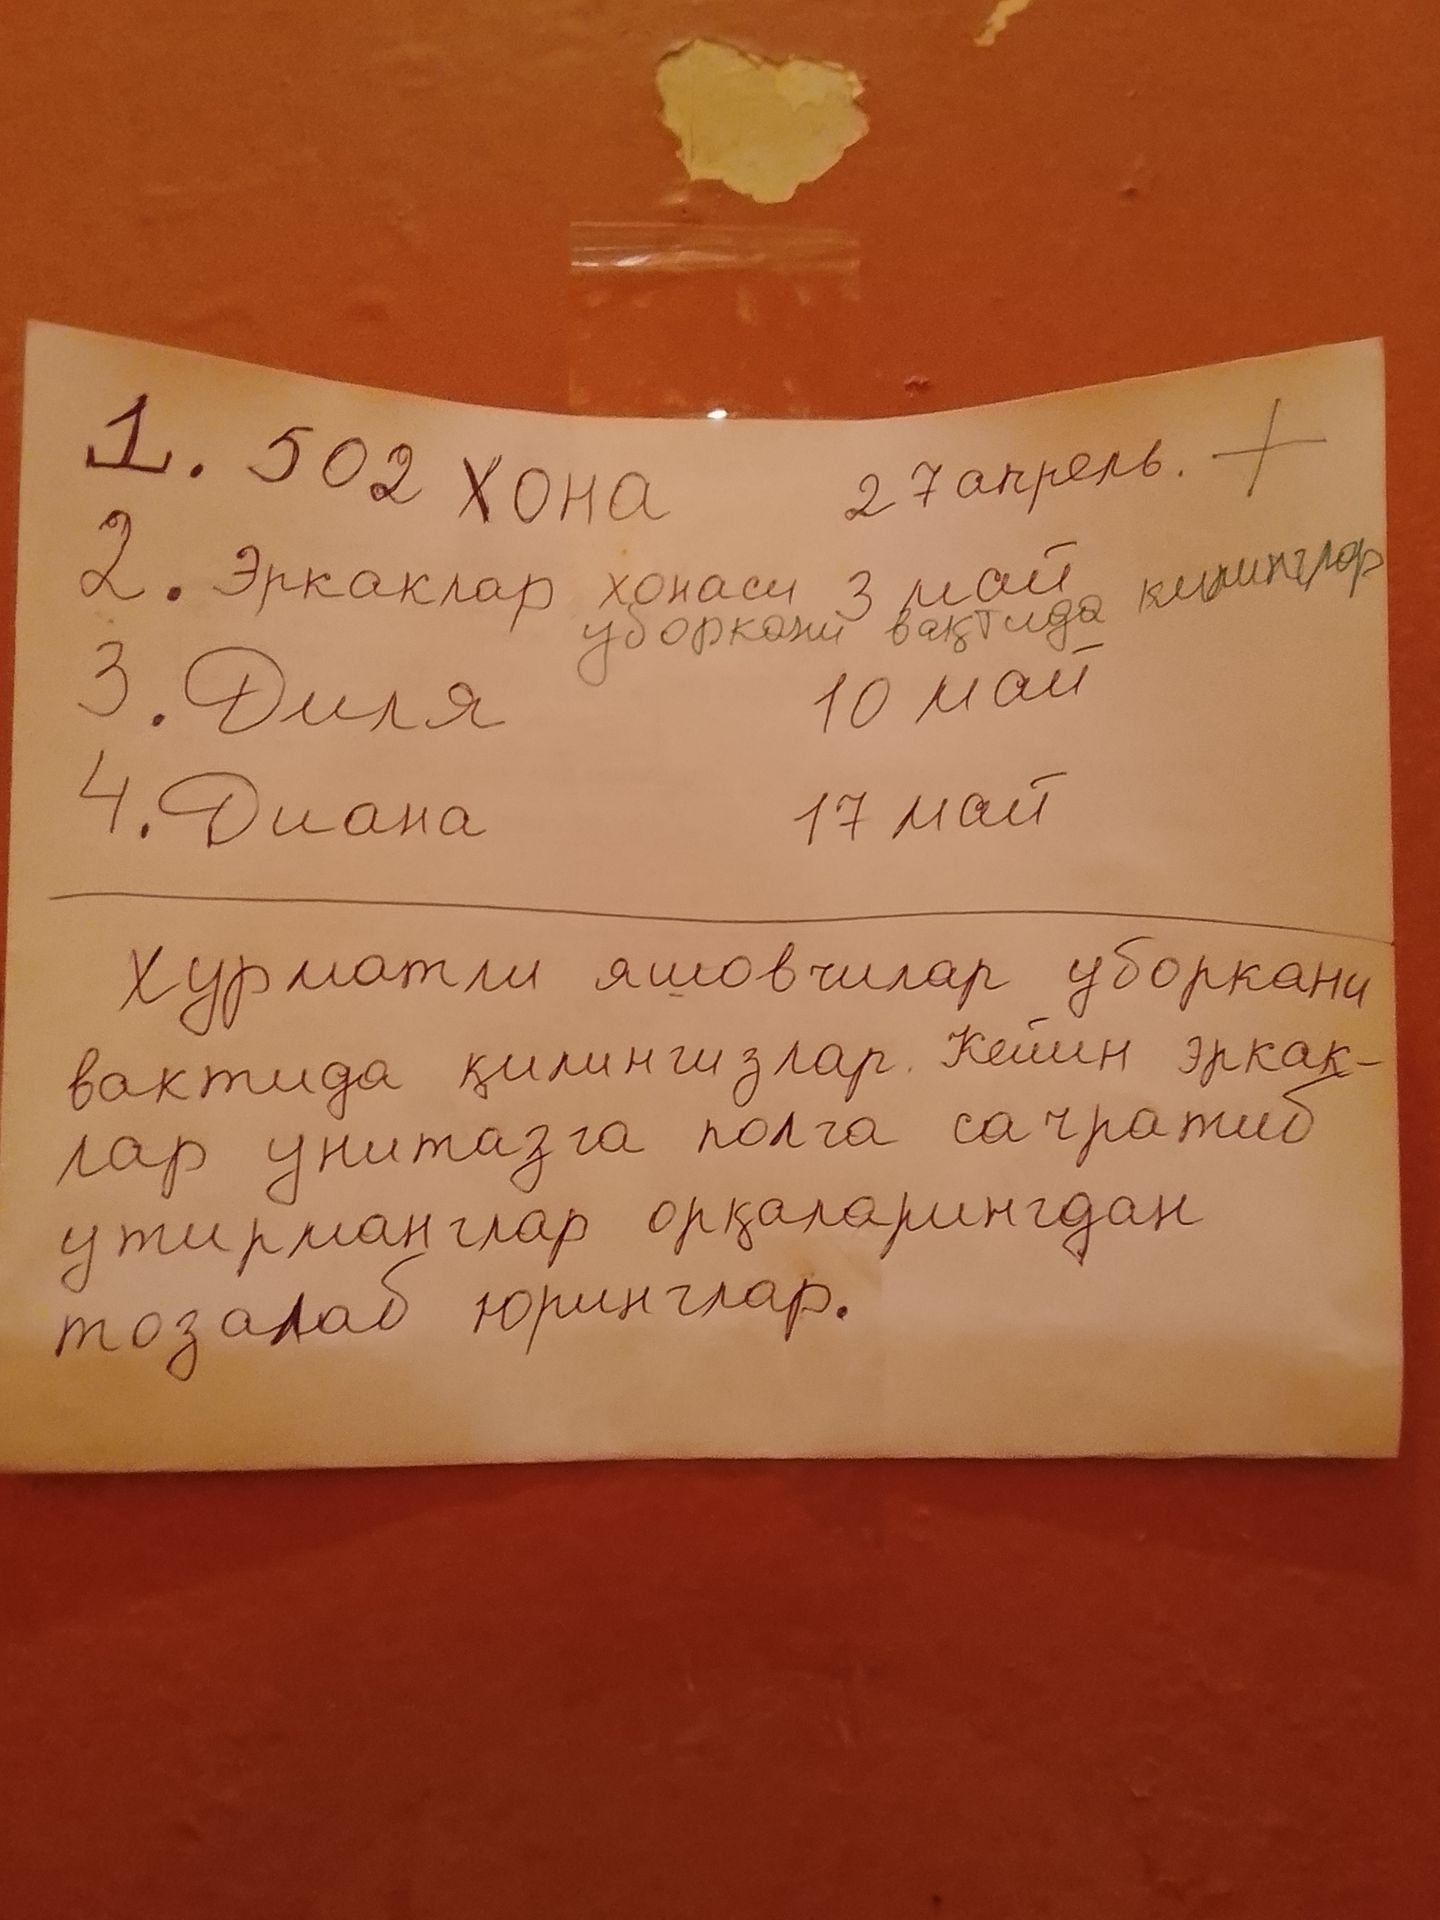 1. 502 хона 27 апрель. +
2. Эркаклар хонаси 3 май
уборкани вақтида килинглар
3. Диля 10 май
4. Диана 17 май
Хурматли яшовчилар уборкани
вактида қилингизлар. Кейин эркак-
лар унитазга полга сачратиб
утирманглар орқаларингдан
тозалаб юринглар.